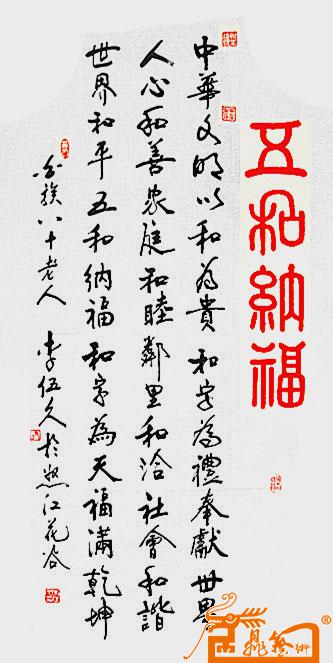 五和納福
中華文明以和為貴和字為禮奉獻世界
人心和善家庭和睦鄰里和洽社會和諧
世界和平五和納福和字為天福滿乾坤
族八十老人李伍久於江花谷